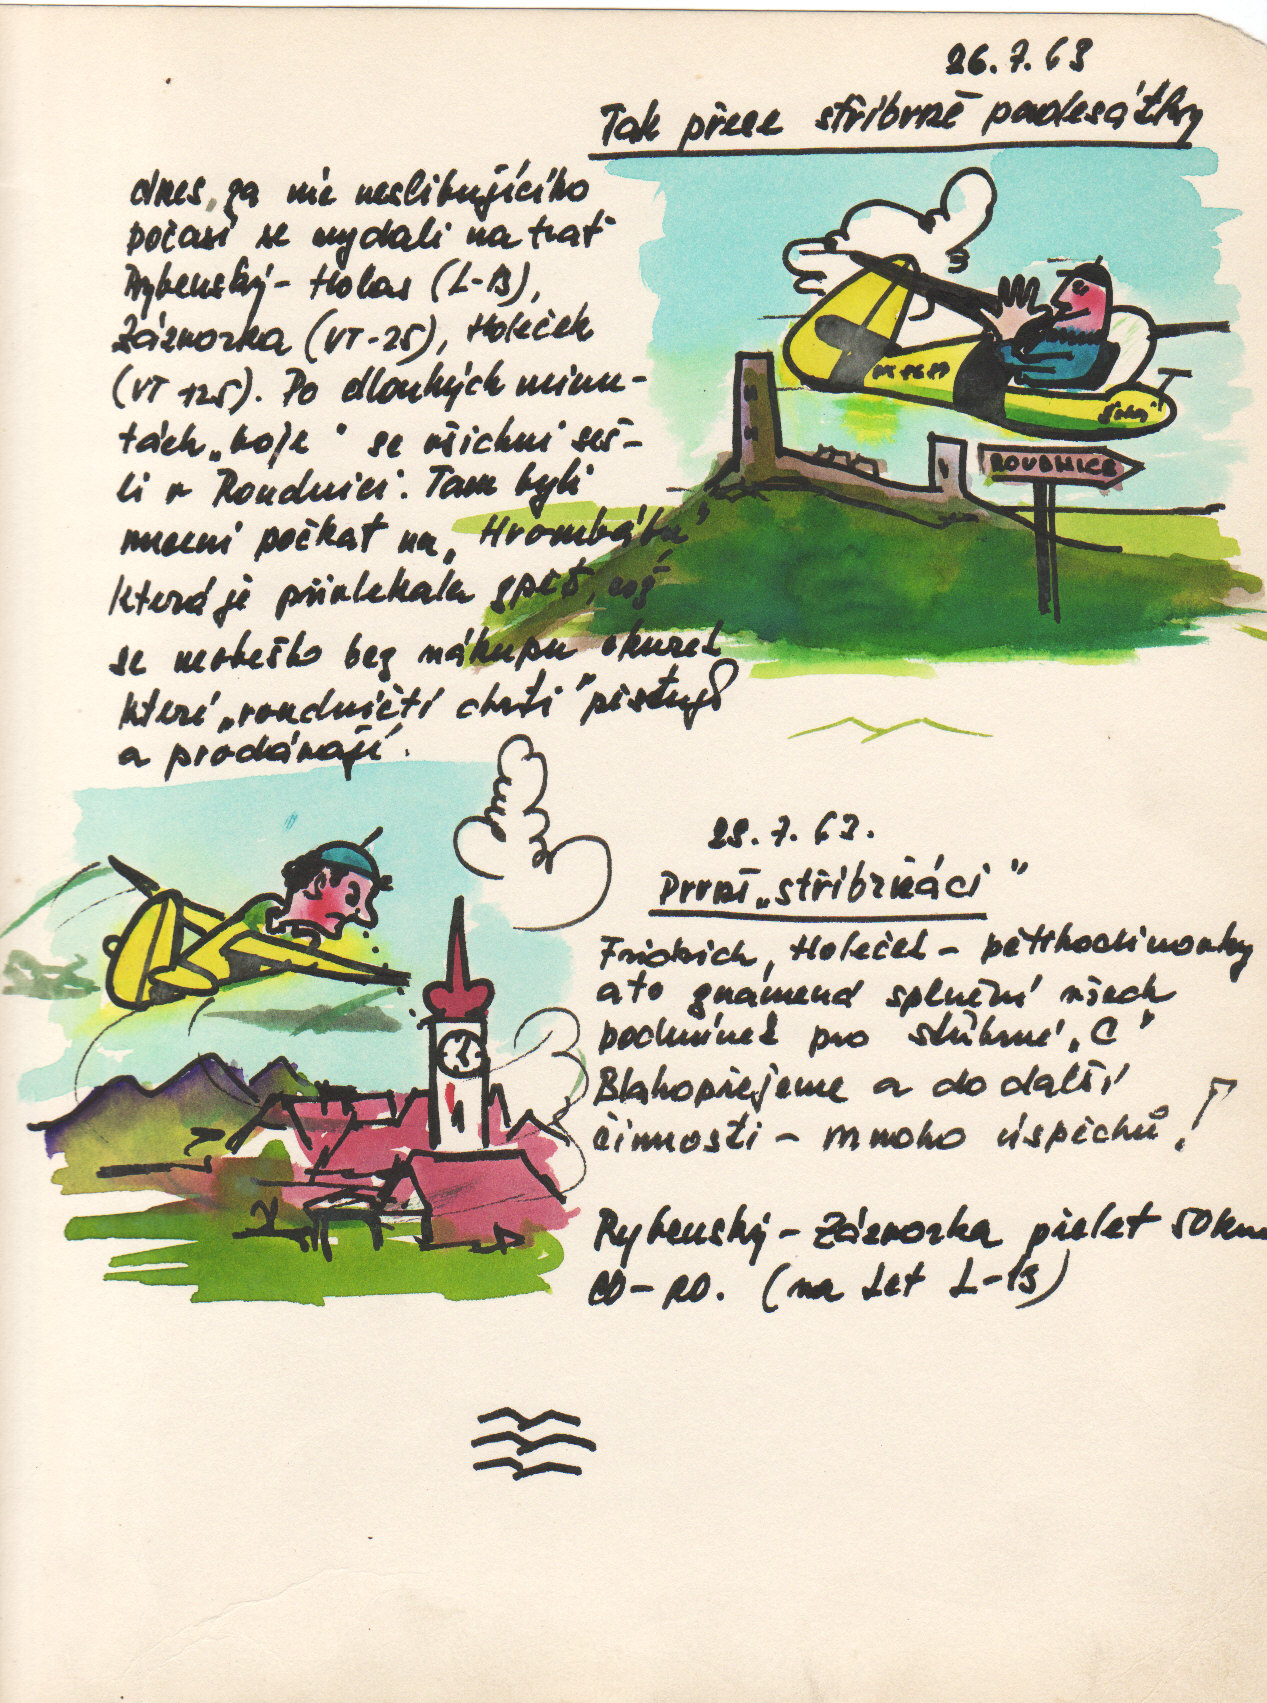 26.7.63
Tak přece stříbrné padesátky
dnes, za nic neslibujícího
počasí se vydali na trať
Rybenský - Holas (L-13),
Závorka (VT-25), Holeček
(VT 125). Po dlouhých minu-
tách „boje“ se všichni seš-
li v Roudnici. Tam byli
nuceni počkat na „Hrombábu“
která je přivlekala zpět, což
se neobešlo bez nákupu okurek
které „roudničtí chrti“ pěstují
a prodávají.
ROUDNICE
28.7.63.
První „stříbrňáci“
Fridrich, Holeček - pětihodinovky
a to znamená splnění všech
podmínek pro stříbrné „C“
Blahopřejeme a do další
činnosti - mnoho úspěchů!
Rybenský - Závorka přelet 50km
- RO. (na Let L-13)